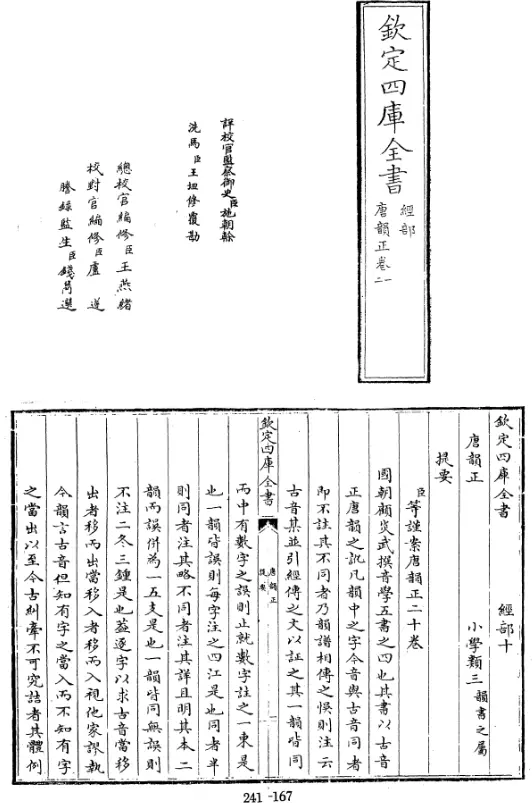 欽定四庫全書
經部
唐韻正卷一二
詳校官監察御史臣施朝榦
洗馬臣王坦修覆勘
總校官編修臣王燕緒
校對官編修臣盧遂
謄錄監生臣錢昺選
欽定四庫全書 經部十
唐韻正 小學類三韻書之屬
提要
臣等謹案唐韻正二十卷
國朝顧炎武撰音學五書之四也其書以古音
正唐韻之訛凡韻中之字今音與古音同者
即不註其不同者乃韻譜相傳之悞則注云
古音某並引經傳之文以証之其一韻皆同
欽定四庫全書
唐韻正
提要
而中有數字之誤則止就數字註之一東是
也一韻皆誤則每字注之四江是也同者半
則同者注其略不同者注其詳且明其本二
韻而誤併為一五支是也一韻皆同無誤則
不注二冬三鍾是也葢逐字以求古音當移
出者移而出當移入者移而入視他家謬執
今韻言古音但知有字之當入而不知有字
之當出以至今古糾牽不可究詰者其體例
241-167